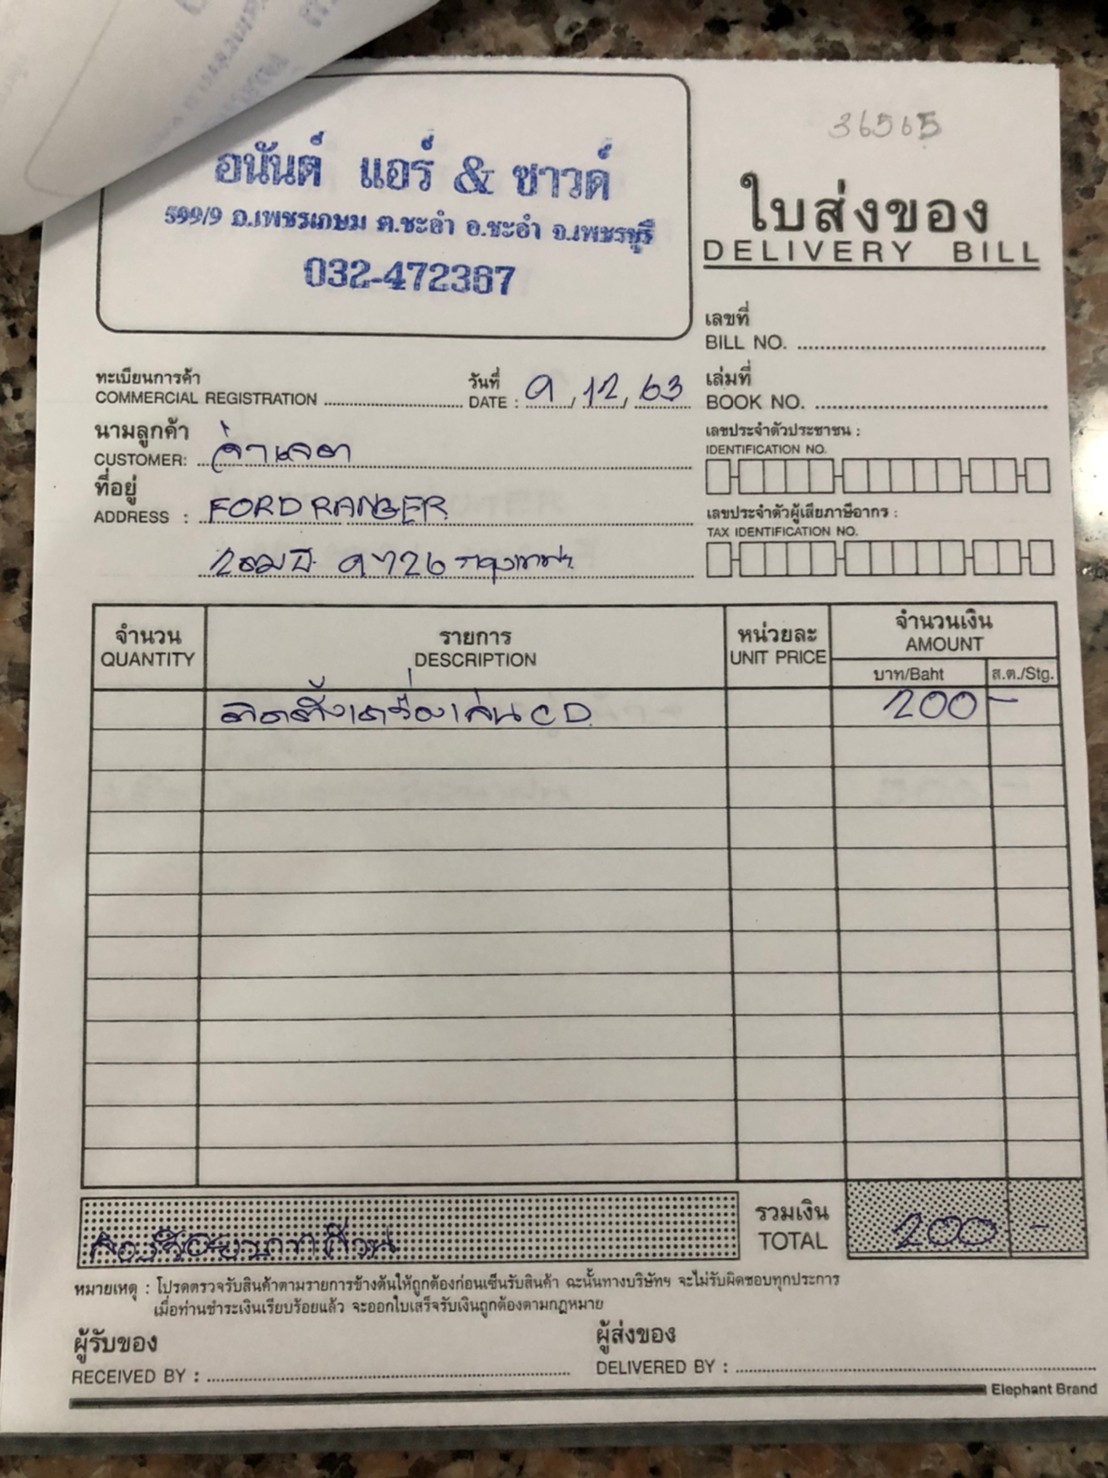 36505
อนันต์ แอร์ & ซาวด์
599/9 ถ.เพชรเกษม ต.ชะอำ อ.ชะอำ จ.เพชรบุรี
032-472367
ใบส่งของ
DELIVERY BILL
เลขที่
BILL NO.
ทะเบียนการค้า
COMMERCIAL REGISTRATION
วันที่
DATE : 9, 12, 63
เล่มที่
BOOK NO.
นามลูกค้า
CUSTOMER:
เลขประจำตัวประชาชน :
IDENTIFICATION NO.
ที่อยู่
ADDRESS : FORD RANGER
เลขประจำตัวผู้เสียภาษีอากร :
TAX IDENTIFICATION NO.
9726 กรุงเทพฯ
จำนวน
QUANTITY
รายการ
DESCRIPTION
หน่วยละ
UNIT PRICE
จำนวนเงิน
AMOUNT
บาท/Baht
ส.ต./Stg.
ติดตั้งเครื่องเล่น CD 200 -
สองร้อยบาทถ้วน
รวมเงิน
TOTAL 200 -
หมายเหตุ : โปรดตรวจรับสินค้าตามรายการข้างต้นให้ถูกต้องก่อนเซ็นรับสินค้า ฉะนั้นทางบริษัทฯ จะไม่รับผิดชอบทุกประการ
เมื่อท่านชำระเงินเรียบร้อยแล้ว จะออกใบเสร็จรับเงินถูกต้องตามกฎหมาย
ผู้รับของ
RECEIVED BY :
ผู้ส่งของ
DELIVERED BY :
Elephant Brand